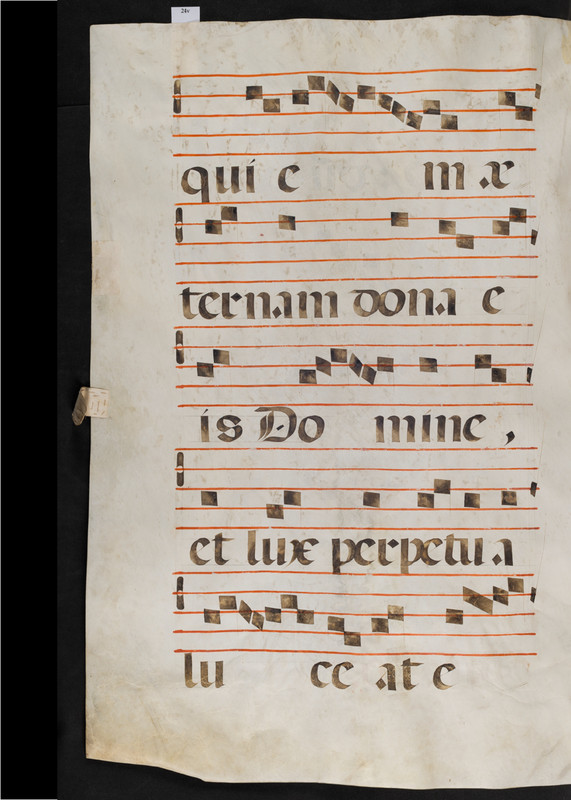 24v
qui e m æ
ternam dona e
is Do mine,
et luxe perpetua
lu ce at e